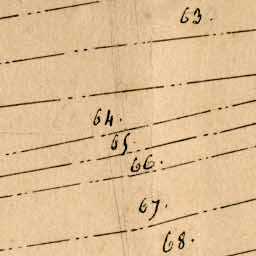 63.
64.
65
66.
67.
68.